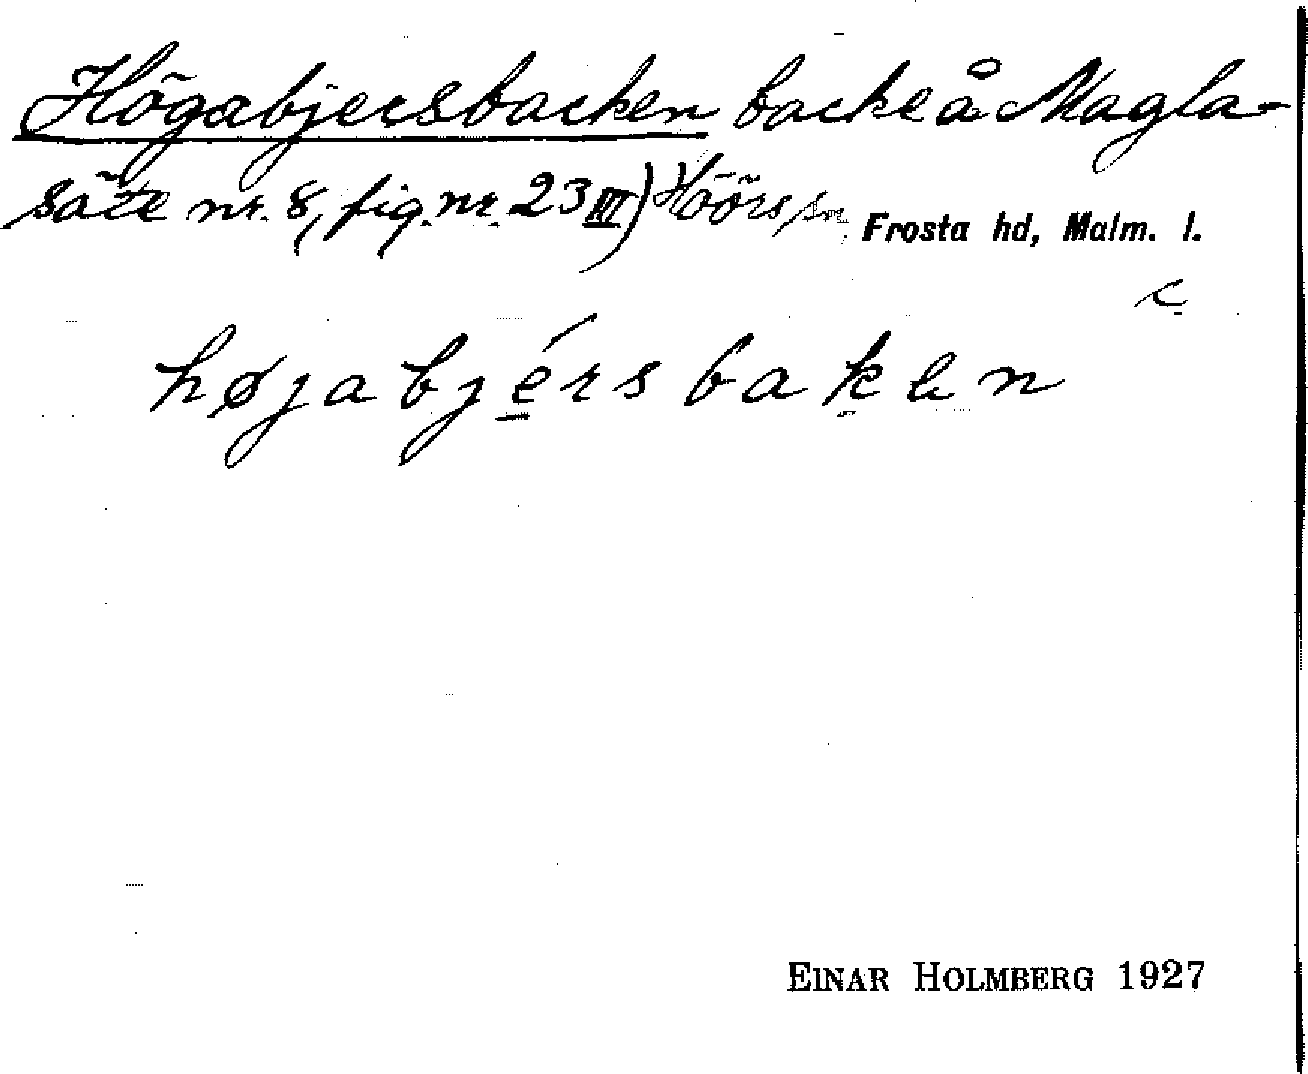 Högabjersbacken backe å Magla-
säte nr. 8, fig. nr. 23 III) Höörs sn Frosta hd, Malm. l.
c
højabjérsbaken
EINAR HOLMBERG 1927